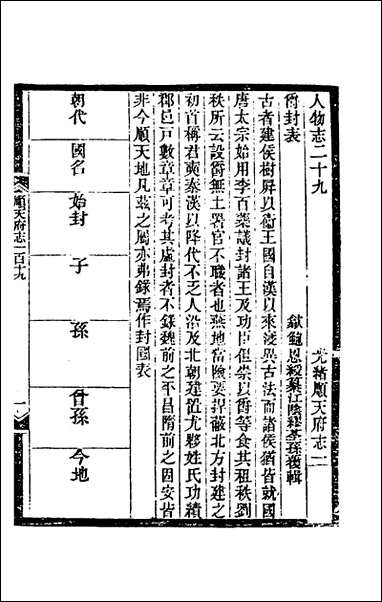 人物志二十九　光緒順天府志一百十九
爵封表　歙鮑恩綬纂江陰繆荃孫覆輯
古者建侯樹屏以衞王國自漢以來浸異古法而諸侯猶皆就國
唐太宗始用李百藥議封諸王及功臣但崇以爵等食其租秩劉
秩所云設爵無土署官不職者也燕地當險要捍蔽北方封建之
初首稱君奭秦漢以降代不乏人沿及北朝建置尤夥姓氏功績
郡邑戶數章章可考其虛封者不錄魏前之平昌隋前之固安皆
非今順天地凡茲之屬亦弗錄焉作封國表
朝代　國名　始封　子　孫　曾孫　今地
順天府志一百十九　一